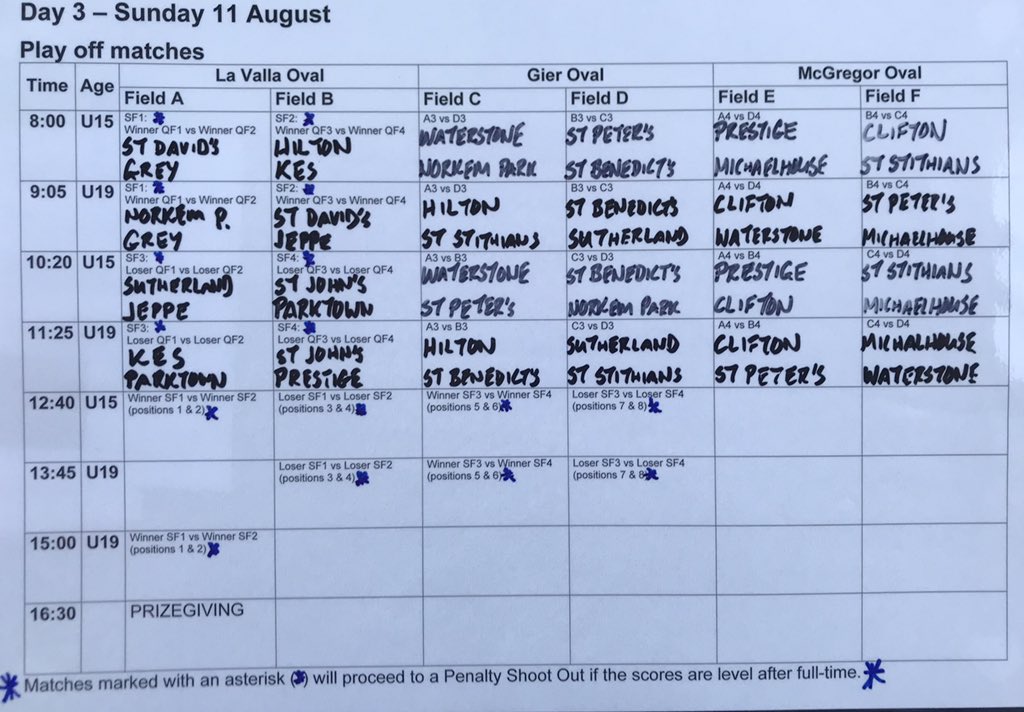 Day 3 – Sunday 11 August
Play off matches
Time Age La Valla Oval Gier Oval McGregor Oval
Field A Field B Field C Field D Field E Field F
8:00 U15 SF1: * SF2: * A3 vs D3 B3 vs C3 A4 vs D4 B4 vs C4
Winner QF1 vs Winner QF2 Winner QF3 vs Winner QF4 WATERSTONE ST PETER'S PRESTIGE CLIFTON
ST DAVID'S HILTON
GREY KES NORKEM PARK ST BENEDICT'S MICHAELHOUSE ST STITHIANS
9:05 U19 SF1: * SF2: * A3 vs D3 B3 vs C3 A4 vs D4 B4 vs C4
Winner QF1 vs Winner QF2 Winner QF3 vs Winner QF4 HILTON ST BENEDICTS CLIFTON ST PETER'S
NORKEM P. ST DAVID'S
GREY JEPPE ST STITHIANS SUTHERLAND WATERSTONE MICHAELHOUSE
10:20 U15 SF3: * SF4: * A3 vs B3 C3 vs D3 A4 vs B4 C4 vs D4
Loser QF1 vs Loser QF2 Loser QF3 vs Loser QF4 WATERSTONE ST BENEDICT'S PRESTIGE ST STITHIANS
SUTHERLAND ST JOHN'S
JEPPE PARKTOWN ST PETER'S NORKEM PARK CLIFTON MICHAELHOUSE
11:25 U19 SF3: * SF4: * A3 vs B3 C3 vs D3 A4 vs B4 C4 vs D4
Loser QF1 vs Loser QF2 Loser QF3 vs Loser QF4 HILTON SUTHERLAND CLIFTON MICHALHOUSE
KES ST JOHN'S
PARKTOWN PRESTIGE ST BENEDICT'S ST STITHIANS ST PETER'S WATERSTONE
12:40 U15 Winner SF1 vs Winner SF2 Loser SF1 vs Loser SF2 Winner SF3 vs Winner SF4 Loser SF3 vs Loser SF4
(positions 1 & 2)* (positions 3 & 4)* (positions 5 & 6)* (positions 7 & 8)*
13:45 U19 Loser SF1 vs Loser SF2 Winner SF3 vs Winner SF4 Loser SF3 vs Loser SF4
(positions 3 & 4)* (positions 5 & 6)* (positions 7 & 8)*
15:00 U19 Winner SF1 vs Winner SF2
(positions 1 & 2)*
16:30 PRIZEGIVING
* Matches marked with an asterisk (*) will proceed to a Penalty Shoot Out if the scores are level after full-time. *